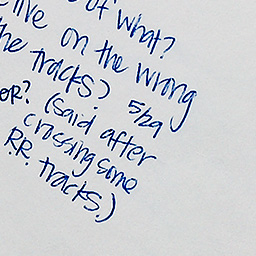 of what?
live on the wrong
the tracks? 5/29
OR? (said after
crossing some
R.R. tracks.)